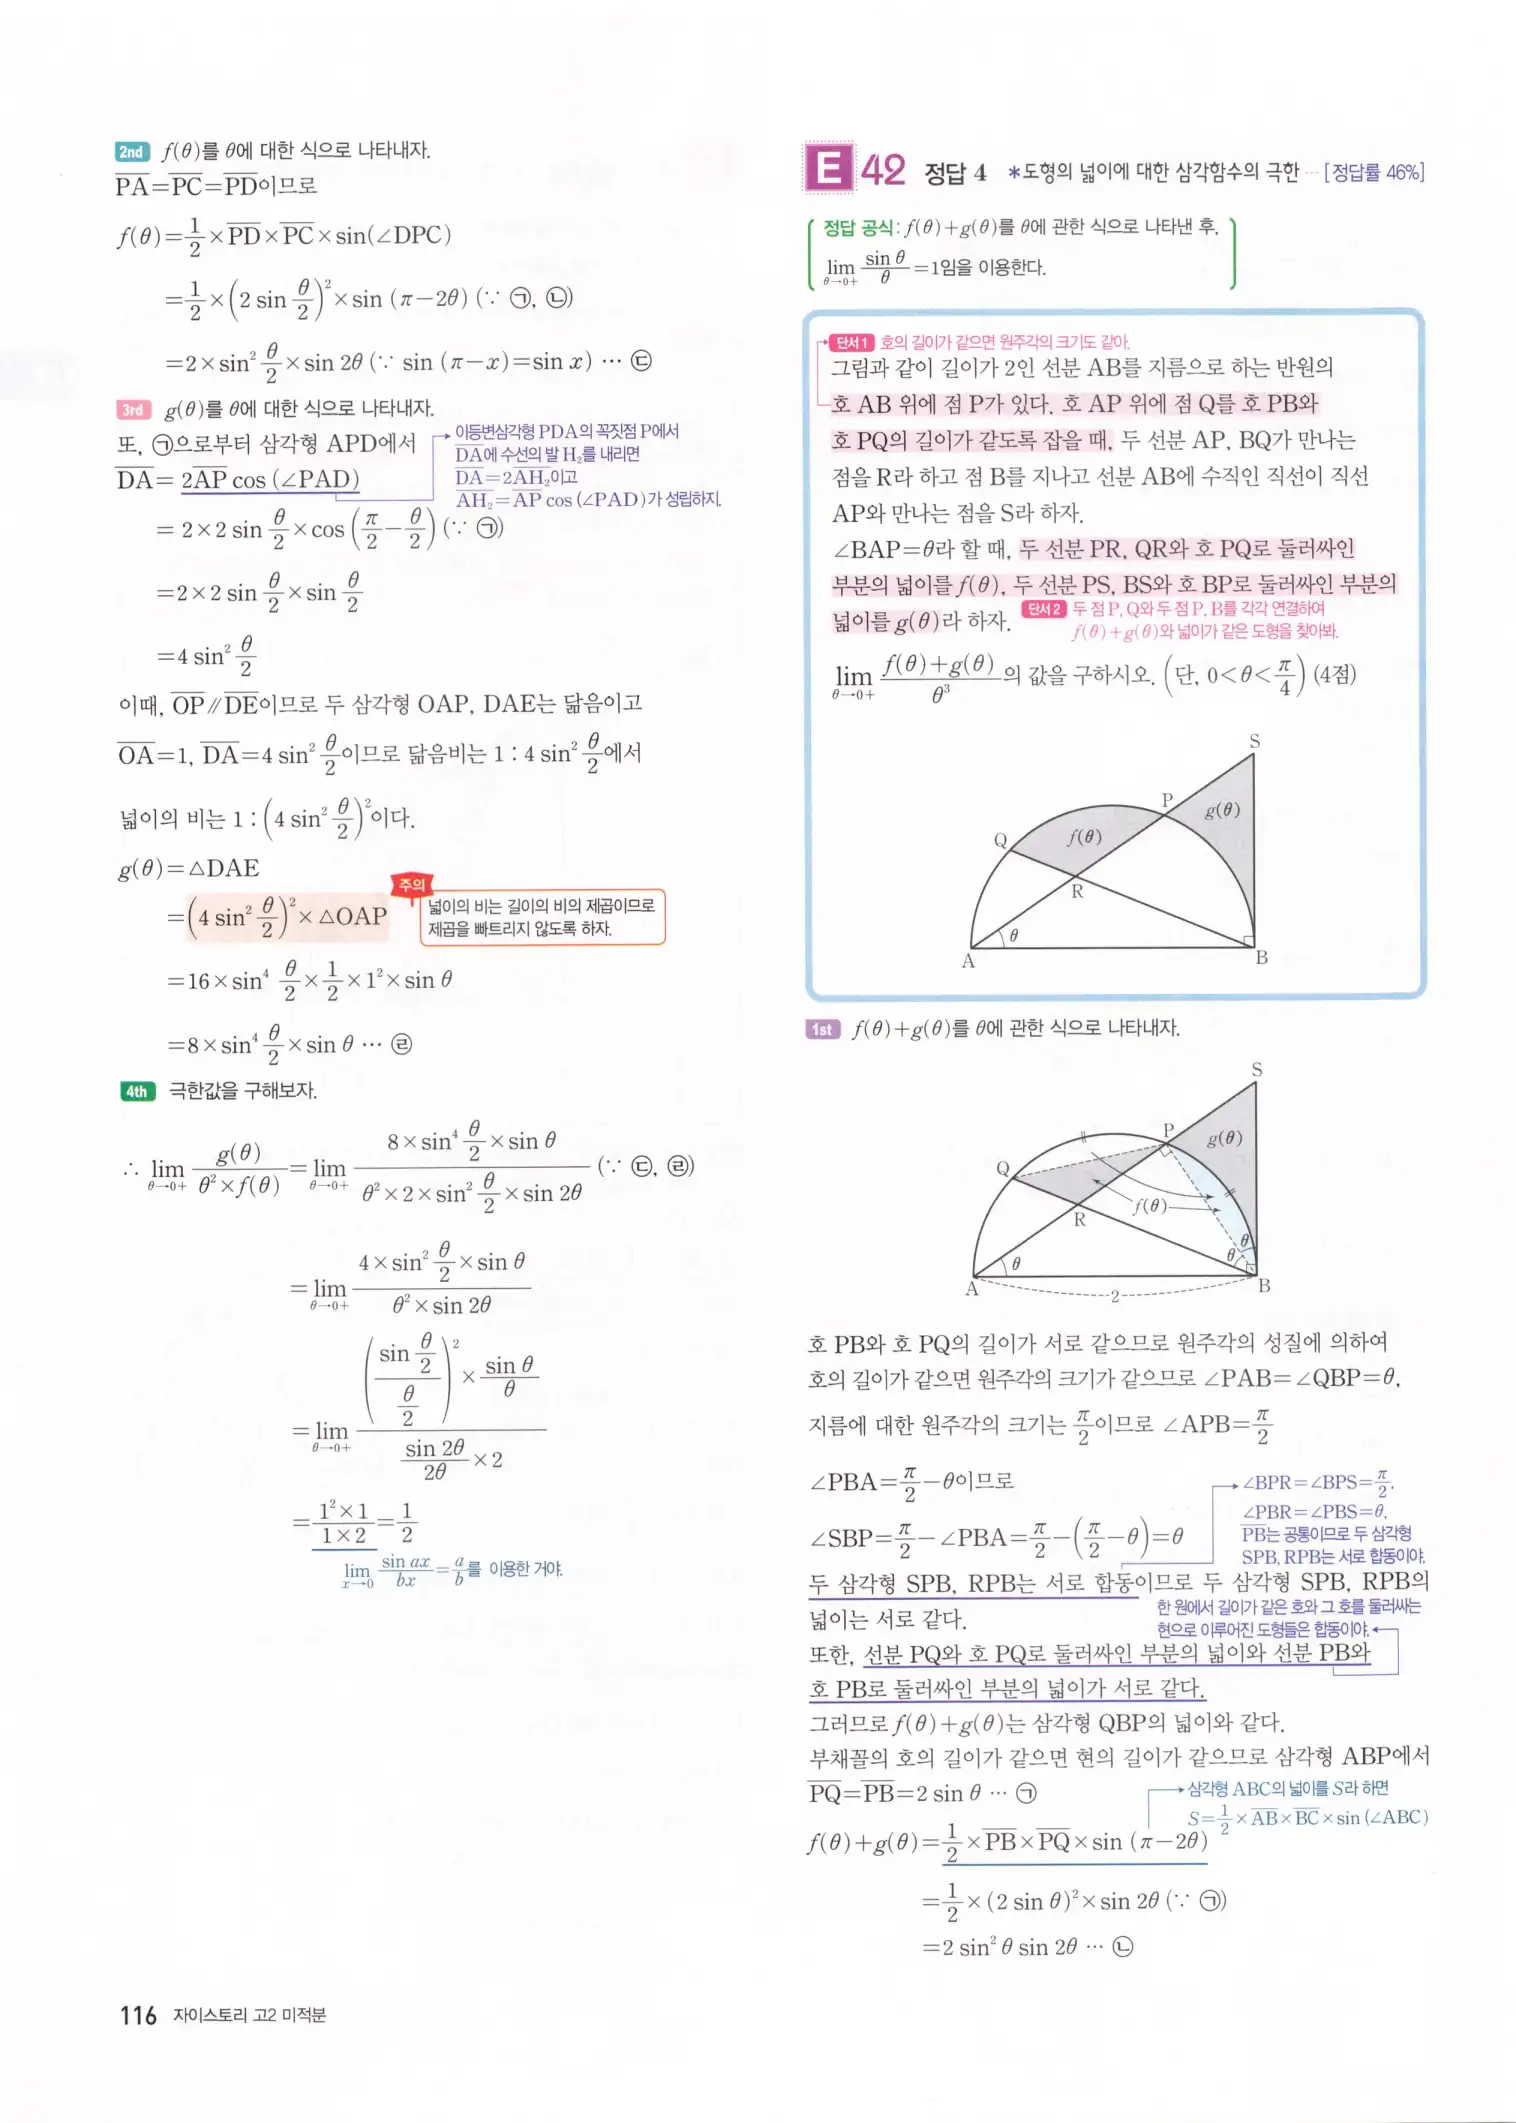 2nd f(θ)를 θ에 대한 식으로 나타내자.
PA=PC=PD이므로
f(θ)=1/2×PD×PC×sin(∠DPC)
=1/2×(2 sin θ/2)²×sin (π−2θ) (∵ ㉠, ㉡)
=2×sin² θ/2×sin 2θ (∵ sin (π−x)=sin x) ··· ㉢
3rd g(θ)를 θ에 대한 식으로 나타내자.
또, ㉠으로부터 삼각형 APD에서
DA= 2AP cos (∠PAD)
이등변삼각형 PDA의 꼭짓점 P에서
DA에 수선의 발 H₂를 내리면
DA=2AH₂이고
AH₂=AP cos (∠PAD)가 성립하지.
= 2×2 sin θ/2×cos (π/2−θ/2) (∵ ㉠)
=2×2 sin θ/2×sin θ/2
=4 sin² θ/2
이때, OP∥DE이므로 두 삼각형 OAP, DAE는 닮음이고
OA=1, DA=4 sin² θ/2이므로 닮음비는 1 : 4 sin² θ/2에서
넓이의 비는 1 : (4 sin² θ/2)²이다.
g(θ)=△DAE
=(4 sin² θ/2)²×△OAP
주의
넓이의 비는 길이의 비의 제곱이므로
제곱을 빠트리지 않도록 하자.
=16×sin⁴ θ/2×1/2×1²×sin θ
=8×sin⁴ θ/2×sin θ ··· ㉣
4th 극한값을 구해보자.
∴ lim θ→0+ g(θ)/(θ²×f(θ))=lim θ→0+ (8×sin⁴ θ/2×sin θ)/(θ²×2×sin² θ/2×sin 2θ) (∵ ㉢, ㉣)
=lim θ→0+ (4×sin² θ/2×sin θ)/(θ²×sin 2θ)
=lim θ→0+ ((sin θ/2 / θ/2)²×sin θ/θ)/(sin 2θ/2θ×2)
=(1²×1)/(1×2)=1/2
lim x→0 sin ax/bx=a/b를 이용한 거야.
116 자이스토리 고2 미적분
E 42 정답 4 *도형의 넓이에 대한 삼각함수의 극한 ··· [정답률 46%]
정답 공식: f(θ)+g(θ)를 θ에 관한 식으로 나타낸 후,
lim θ→0+ sin θ/θ=1임을 이용한다.
단서1 호의 길이가 같으면 원주각의 크기도 같아.
그림과 같이 길이가 2인 선분 AB를 지름으로 하는 반원의
호 AB 위에 점 P가 있다. 호 AP 위에 점 Q를 호 PB와
호 PQ의 길이가 같도록 잡을 때, 두 선분 AP, BQ가 만나는
점을 R라 하고 점 B를 지나고 선분 AB에 수직인 직선이 직선
AP와 만나는 점을 S라 하자.
∠BAP=θ라 할 때, 두 선분 PR, QR와 호 PQ로 둘러싸인
부분의 넓이를 f(θ), 두 선분 PS, BS와 호 BP로 둘러싸인 부분의
넓이를 g(θ)라 하자.
단서2 두 점 P, Q와 두 점 P, B를 각각 연결하여
f(θ)+g(θ)와 넓이가 같은 도형을 찾아봐.
lim θ→0+ (f(θ)+g(θ))/θ³의 값을 구하시오. (단, 0<θ<π/4) (4점)
S
P
g(θ)
Q
f(θ)
R
θ
A
B
1st f(θ)+g(θ)를 θ에 관한 식으로 나타내자.
S
P
g(θ)
Q
f(θ)
R
θ
θ
θ
A
2
B
호 PB와 호 PQ의 길이가 서로 같으므로 원주각의 성질에 의하여
호의 길이가 같으면 원주각의 크기가 같으므로 ∠PAB=∠QBP=θ,
지름에 대한 원주각의 크기는 π/2이므로 ∠APB=π/2
∠PBA=π/2−θ이므로
∠SBP=π/2−∠PBA=π/2−(π/2−θ)=θ
∠BPR=∠BPS=π/2,
∠PBR=∠PBS=θ,
PB는 공통이므로 두 삼각형
SPB, RPB는 서로 합동이야.
두 삼각형 SPB, RPB는 서로 합동이므로 두 삼각형 SPB, RPB의
넓이는 서로 같다.
한 원에서 길이가 같은 호와 그 호를 둘러싸는
현으로 이루어진 도형들은 합동이야.
또한, 선분 PQ와 호 PQ로 둘러싸인 부분의 넓이와 선분 PB와
호 PB로 둘러싸인 부분의 넓이가 서로 같다.
그러므로 f(θ)+g(θ)는 삼각형 QBP의 넓이와 같다.
부채꼴의 호의 길이가 같으면 현의 길이가 같으므로 삼각형 ABP에서
PQ=PB=2 sin θ ··· ㉠
삼각형 ABC의 넓이를 S라 하면
S=1/2×AB×BC×sin (∠ABC)
f(θ)+g(θ)=1/2×PB×PQ×sin (π−2θ)
=1/2×(2 sin θ)²×sin 2θ (∵ ㉠)
=2 sin² θ sin 2θ ··· ㉡